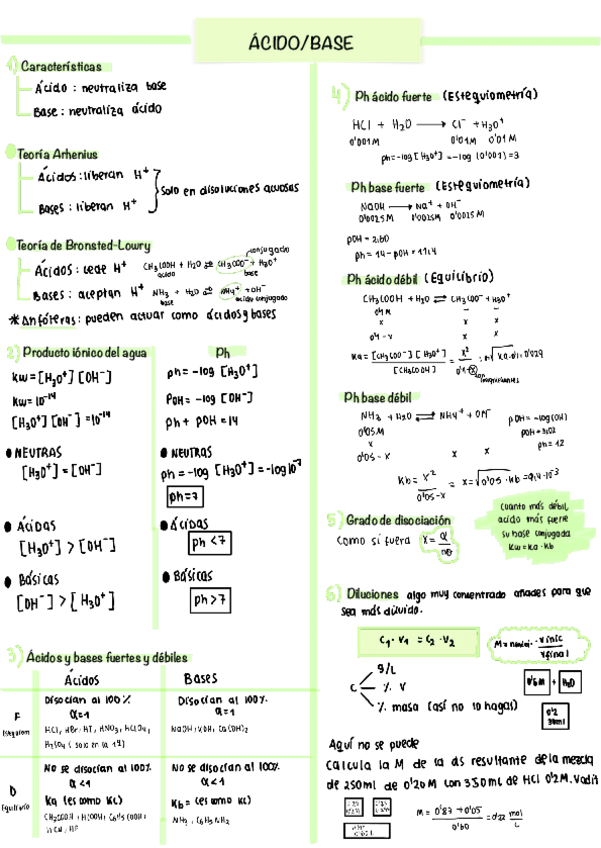 ÁCIDO/BASE
1) Características
Ácido : neutraliza base
Base : neutraliza ácido
Teoría Arhenius
Ácidos : liberan H⁺
Bases : liberan H⁺
Solo en disoluciones acuosas
Teoría de Bronsted-Lowry
conjugado
Ácidos : cede H⁺ CH₃COOH + H₂O ⇌ CH₃COO⁻ + H₃O⁺
ácido base
Bases : aceptan H⁺ NH₃ + H₂O ⇌ NH₄⁺ + OH⁻
base ácido conjugado
* Anfóteras : pueden actuar como ácidos y bases
2) Producto iónico del agua
Kw = [H₃O⁺] [OH⁻]
Kw = 10⁻¹⁴
[H₃O⁺] [OH⁻] = 10⁻¹⁴
• NEUTRAS
[H₃O⁺] = [OH⁻]
• Ácidas
[H₃O⁺] > [OH⁻]
• Básicas
[OH⁻] > [H₃O⁺]
Ph
ph = -log [H₃O⁺]
POH = -log [OH⁻]
ph + POH = 14
• NEUTRAS
ph = -log [H₃O⁺] = -log 10⁻⁷
ph = 7
• Ácidas
ph < 7
• Básicas
ph > 7
3) Ácidos y bases fuertes y débiles
Ácidos Bases
F
Disocian al 100%
α = 1
HCl, HBr, HI, HNO₃, HClO₄,
H₂SO₄ (solo en la 1ª)
Disocian al 100%.
α = 1
NaOH, KOH, Ca(OH)₂
D
Equilibrio
No se disocian al 100%
α < 1
Ka (es como Kc)
No se disocian al 100%.
α < 1
Kb = (es como Kc)
NH₃, C₆H₅NH₂
4) Ph ácido fuerte (Estequiometría)
HCl + H₂O ⟶ Cl⁻ + H₃O⁺
0'001M 0'01M 0'01M
ph = -log [H₃O⁺] = -log (0'001) = 3
Ph base fuerte (Estequiometría)
NaOH ⟶ Na⁺ + OH⁻
0'0025M 0'0025M 0'0025M
pOH = 2,60
ph = 14 - pOH = 11,4
Ph ácido débil (Equilibrio)
CH₃COOH + H₂O ⇌ CH₃COO⁻ + H₃O⁺
x x x
Ka = [CH₃COO⁻] [H₃O⁺] / [CH₃COOH] = x²
Ph base débil
NH₃ + H₂O ⇌ NH₄⁺ + OH⁻ pOH = -log(OH)
0'05M
x
0'05 - x x x
ph = 12
Kb = x² / 0'05-x = x = √0'05 · Kb = 9,4·10⁻³
5) Grado de disociación
como si fuera x = α / no
cuanto más débil
ácido más fuerte
su base conjugada
Kw = Ka · Kb
6) Diluciones algo muy concentrado añades para que
sea más diluido.
C₁ · V₁ = C₂ · V₂
C
g/L
% V
% masa (así no lo hagas)
0'6M + H₂O
0'2
Aquí no se puede
Calcula la M de la ds resultante de la mezcla
de 250ml de 0'20M con 350ml de HCl 0'2M.
M = 0'87 + 0'05 / 0'60 = 0'22 mol/L